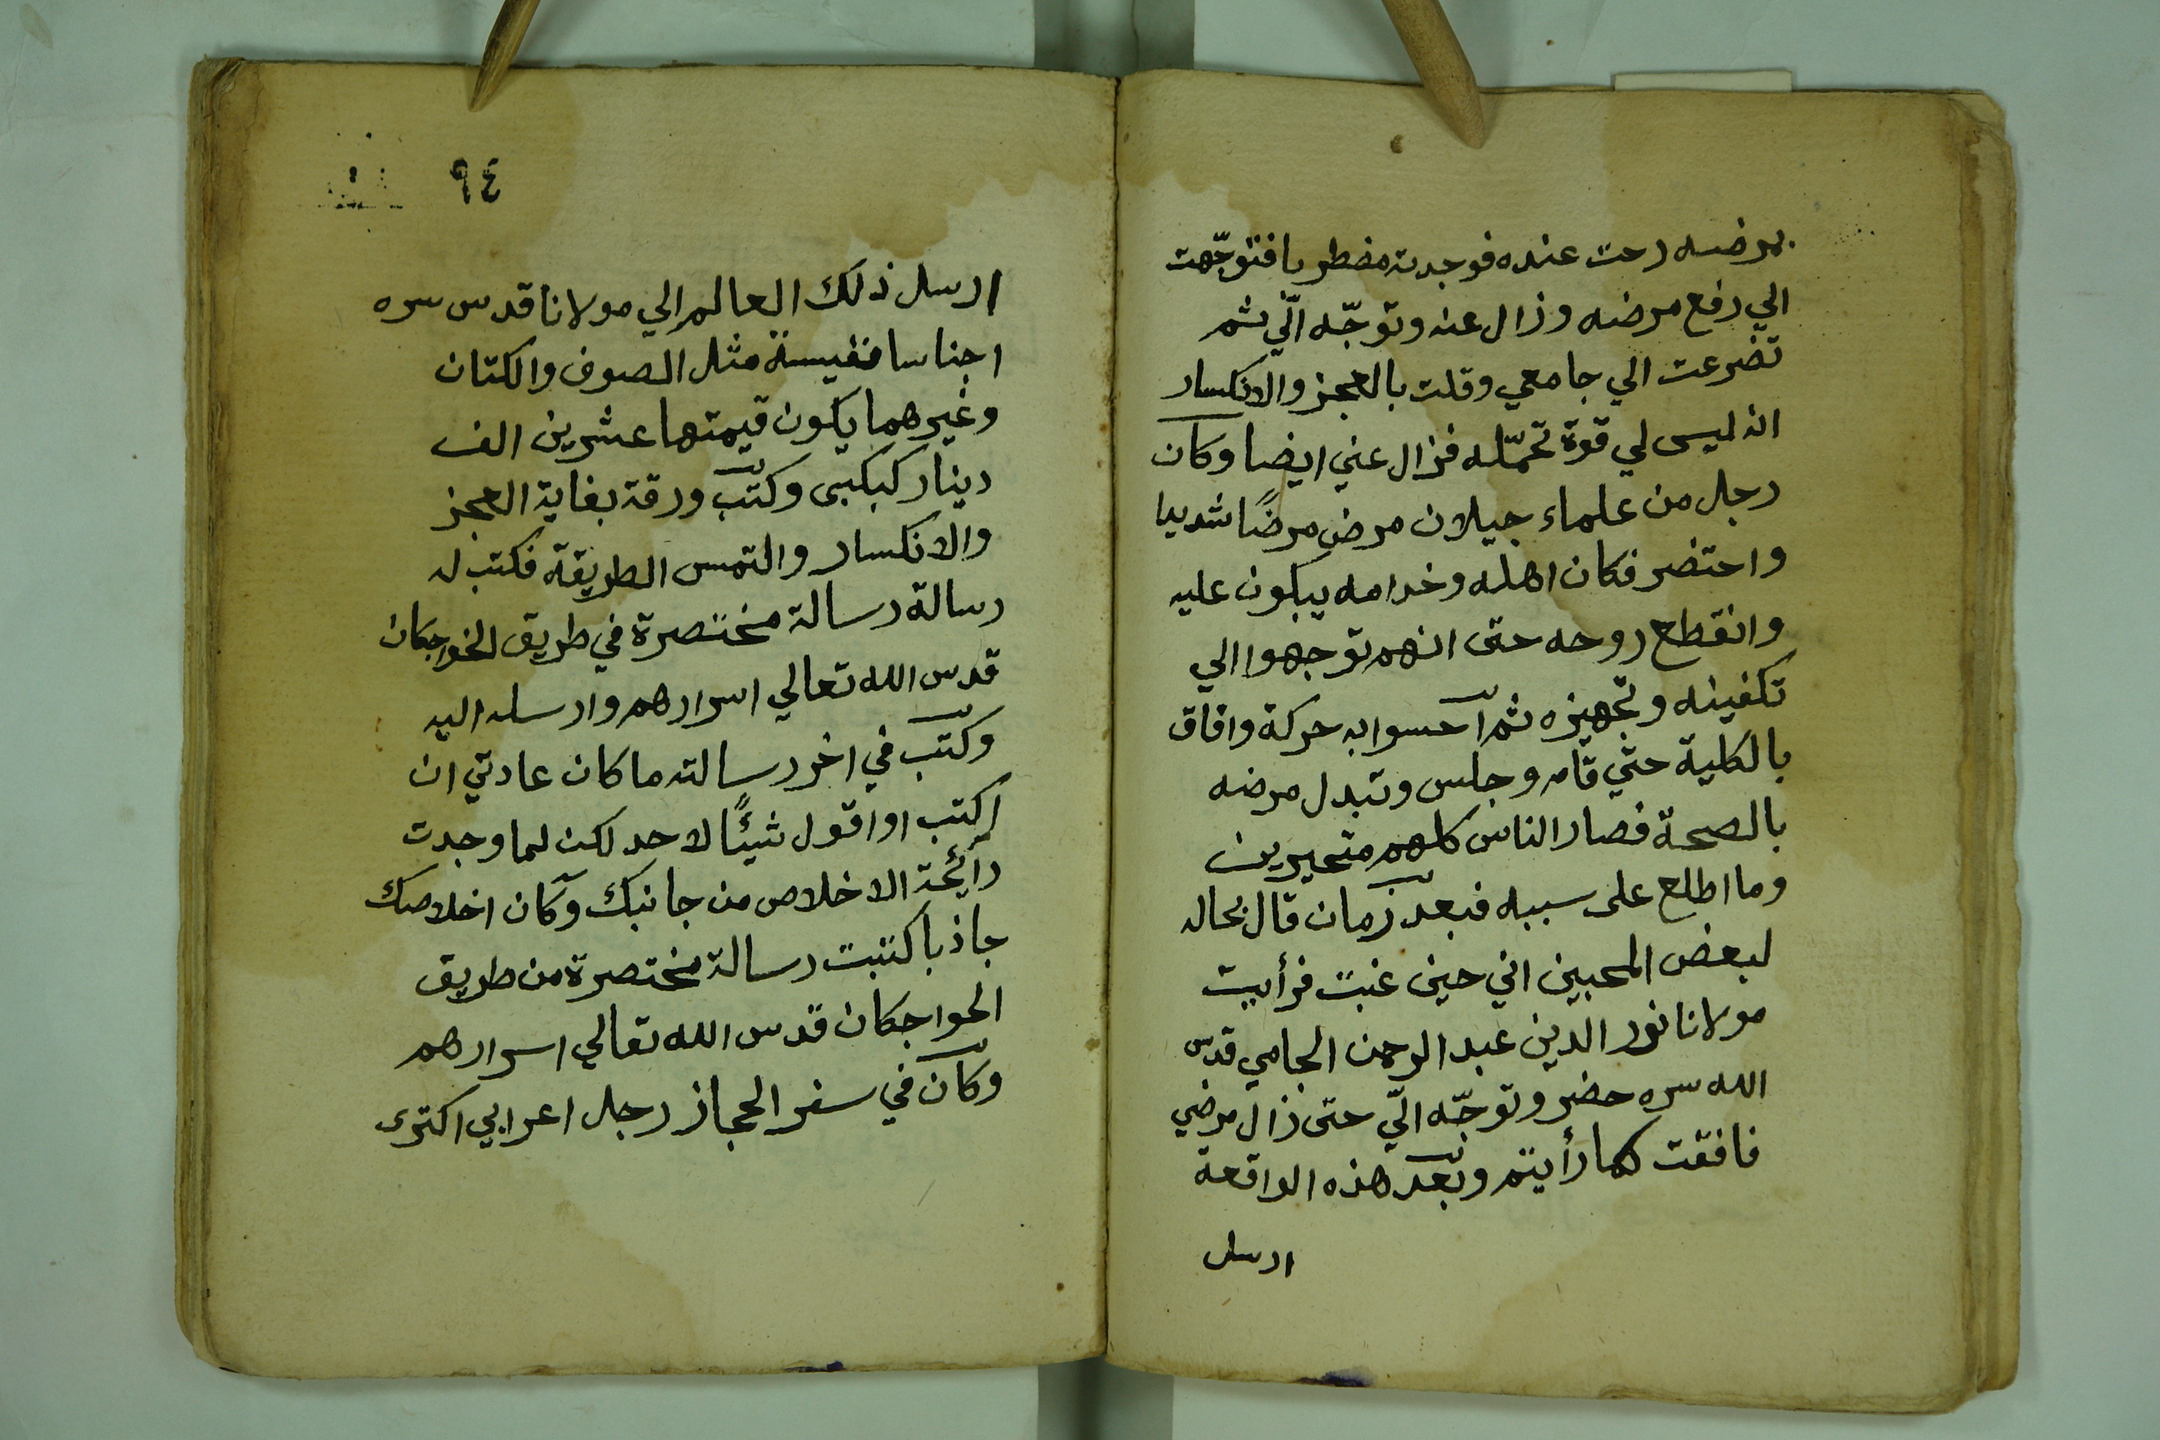 بمرضه رحت عنده فوجدته مضطربا فتوجّهت
الي رفع مرضه وزال عنه وتوجّه اليّ ثم
تضرعت الي جامعي وقلت بالعجز والانكسار
انه ليس لي قوة تحمّله فزال عني ايضا وكان
رجل من علماء جيلان مرض مرضًا شديدا
واحتضر فكان اهله وخدامه يبكون عليه
وانقطع روحه حتى انهم توجهوا الي
تكفينه وتجهيزه ثم احسوا به حركة وافاق
بالكلية حتي قام وجلس وتبدل مرضه
بالصحة فصار الناس كلهم متحيرين
وما اطلع على سببه فبعد زمان قال بحاله
لبعض المحبين اني حين غبت فرأيت
مولانا نور الدين عبد الرحمن الجامي قدس
الله سره حضر وتوجّه اليّ حتى زال مرضي
فافقت كما رأيتم وبعد هذه الواقعة
ارسل
٩٤
ارسل ذلك العالم الي مولانا قدس سره
اجناسا نفيسة مثل الصوف والكتان
وغيرهما يكون قيمتها عشرين الف
دينار كبكبى وكتب ورقة بغاية العجز
والانكسار والتمس الطريقة فكتب له
رسالة رسالة مختصرة في طريق الخواجكان
قدس الله تعالي اسرارهم وارسله اليه
وكتب في اخر رسالته ما كان عادتي ان
اكتب او اقول شيئًا لاحد لكن لما وجدت
رائحة الاخلاص من جانبك وكان اخلاصك
جاذبا كتبت رسالة مختصرة من طريق
الخواجكان قدس الله تعالي اسرارهم
وكان في سفر الحجاز رجل اعرابي اكترى